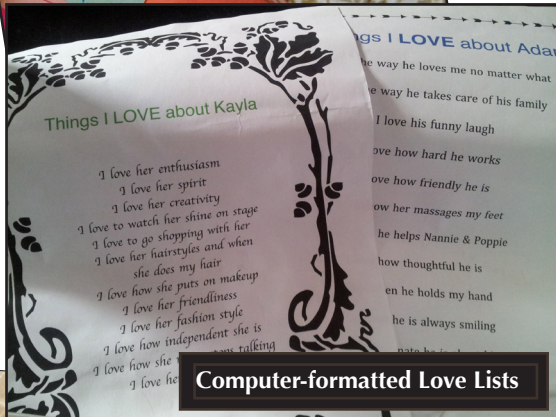 Things I LOVE about Kayla
I love her enthusiasm
I love her spirit
I love her creativity
I love to watch her shine on stage
I love to go shopping with her
I love her hairstyles and when
she does my hair
I love how she puts on makeup
I love her friendliness
I love her fashion style
I love how independent she is
I love how she talking
I love her
I LOVE about Adam
he way he loves me no matter what
way he takes care of his family
I love his funny laugh
ove how hard he works
ove how friendly he is
ow her massages my feet
he helps Nannie & Poppie
how thoughtful he is
en he holds my hand
he is always smiling
Computer-formatted Love Lists